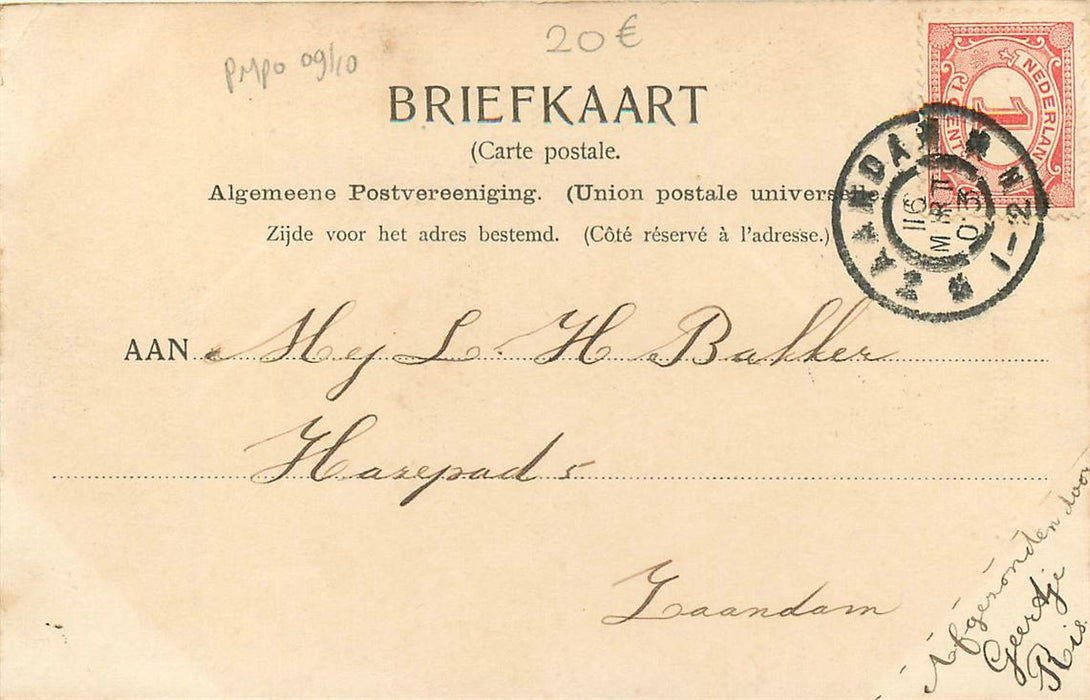 20€
PMPO 09/10
BRIEFKAART
(Carte postale.
Algemeene Postvereeniging. (Union postale universe
Zijde voor het adres bestemd. (Côté réservé à l'adresse.)
NEDERLAN
1 CENT
1
ZAANDAM
16
MRT
03
1-2 N
AAN Mej L. H Bakker
Hazepad 5
Zaandam
Afgezonden door
Geertje
Ris.